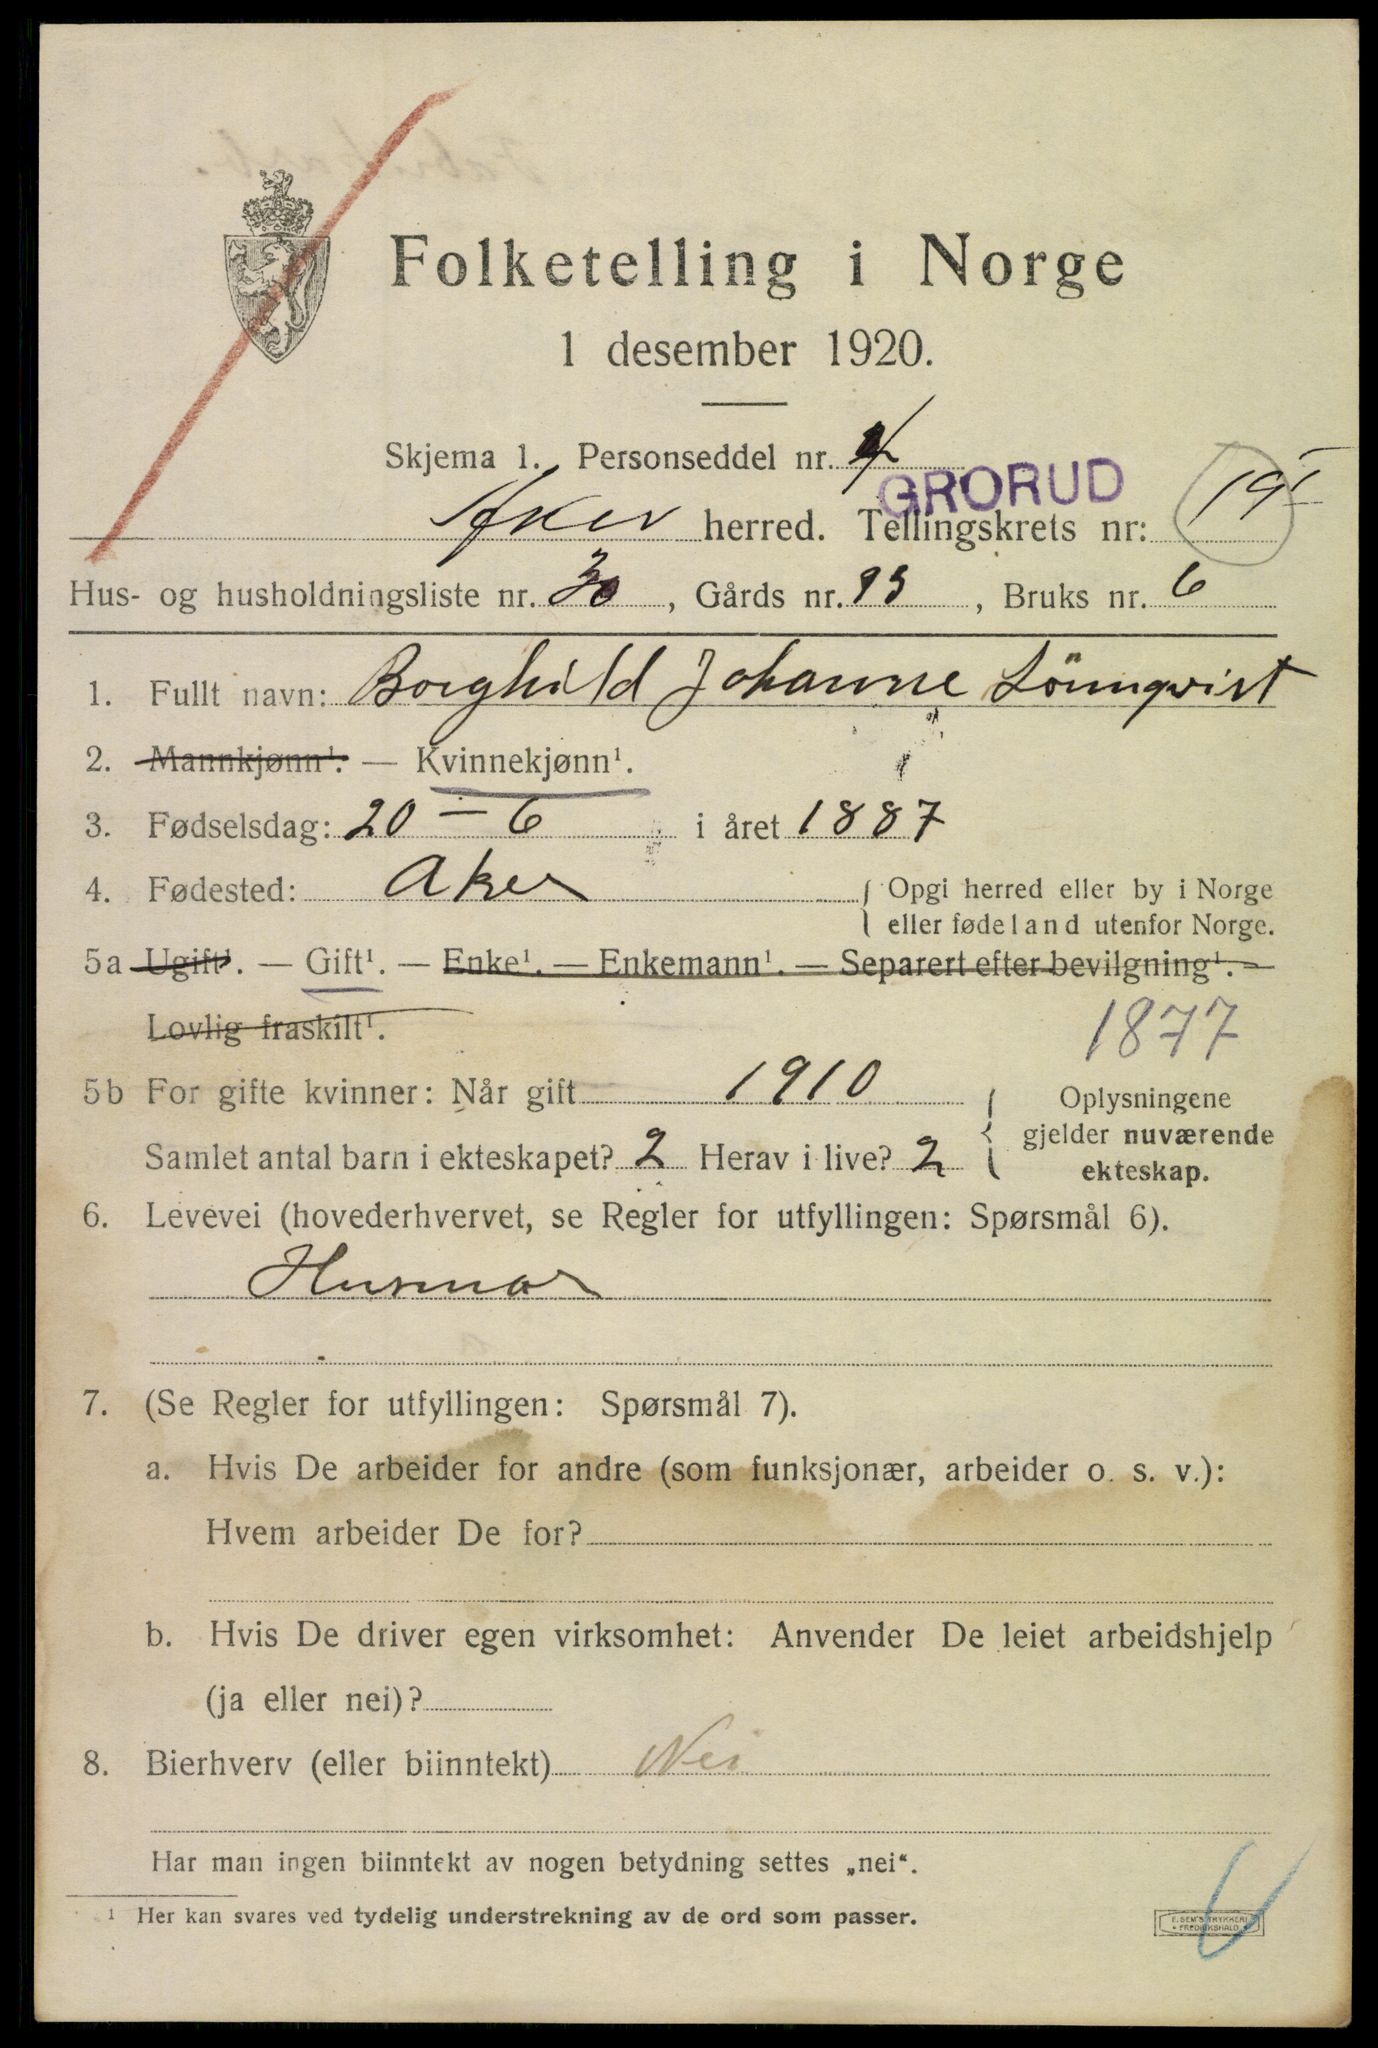 Folketelling i Norge
1 desember 1920.
Skjema 1. Personseddel nr.
GRORUD
Aker herred. Tellingskrets nr: 19
Hus- og husholdningsliste nr. 30, Gårds nr. 95, Bruks nr. 6
1. Fullt navn: Borghild Johanne Lönnqvist
2. Mannkjønn¹. — Kvinnekjønn¹.
3. Fødselsdag: 20 – 6 i året 1887
4. Fødested: Aker { Opgi herred eller by i Norge
eller fødeland utenfor Norge.
5a Ugift¹. — Gift¹. — Enke¹. — Enkemann¹. — Separert efter bevilgning¹. —
Lovlig fraskilt¹.
1877
5b For gifte kvinner: Når gift 1910
Samlet antal barn i ekteskapet? 2 Herav i live? 2
{ Oplysningene
gjelder nuværende
ekteskap.
6. Levevei (hovederhvervet, se Regler for utfyllingen: Spørsmål 6).
Husmor
7. (Se Regler for utfyllingen: Spørsmål 7).
a. Hvis De arbeider for andre (som funksjonær, arbeider o. s. v.):
Hvem arbeider De for?
b. Hvis De driver egen virksomhet: Anvender De leiet arbeidshjelp
(ja eller nei)?
8. Bierhverv (eller biinntekt) Nei
Har man ingen biinntekt av nogen betydning settes „nei“.
¹ Her kan svares ved tydelig understrekning av de ord som passer.
E. SEM'S TRYKKERI
FREDRIKSHALD